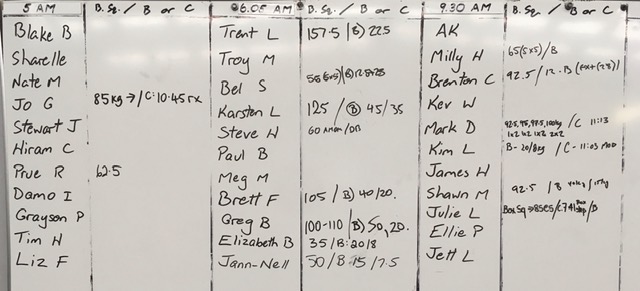 5 AM B. Sq. / B or C 6.05 AM B. Sq. / B or C 9.30 AM B. Sq. / B or C
Blake B Trent L 157.5 /(B) 225 AK
Sharelle Troy M Milly H 65(5x5)/B
Nate M Bel S Brenton C 92.5 / 12. B
Jo G 85kg → / C: 10:45 rx Karsten L 125 / (B) 45/35 Kev W
Stewart J Steve H 60 Mark D 92.5, 95, 97.5, 100kg / C 11:13
1x2 4x2 1x2 2x2
Hiram C Paul B Kim L B- 20/8kg / C - 11:03
Prue R 62.5 Meg M James H
Damo I Brett F 105 / B) 40/20. Shawn M 92.5 / B
Grayson P Greg B 100-110 / (B) 50, 20. Julie L Box Sq → 85
Tim H Elizabeth B 35 / B: 20/8 Ellie P
Liz F Jann-Nell 50 / B 15 / 7.5 Jett L